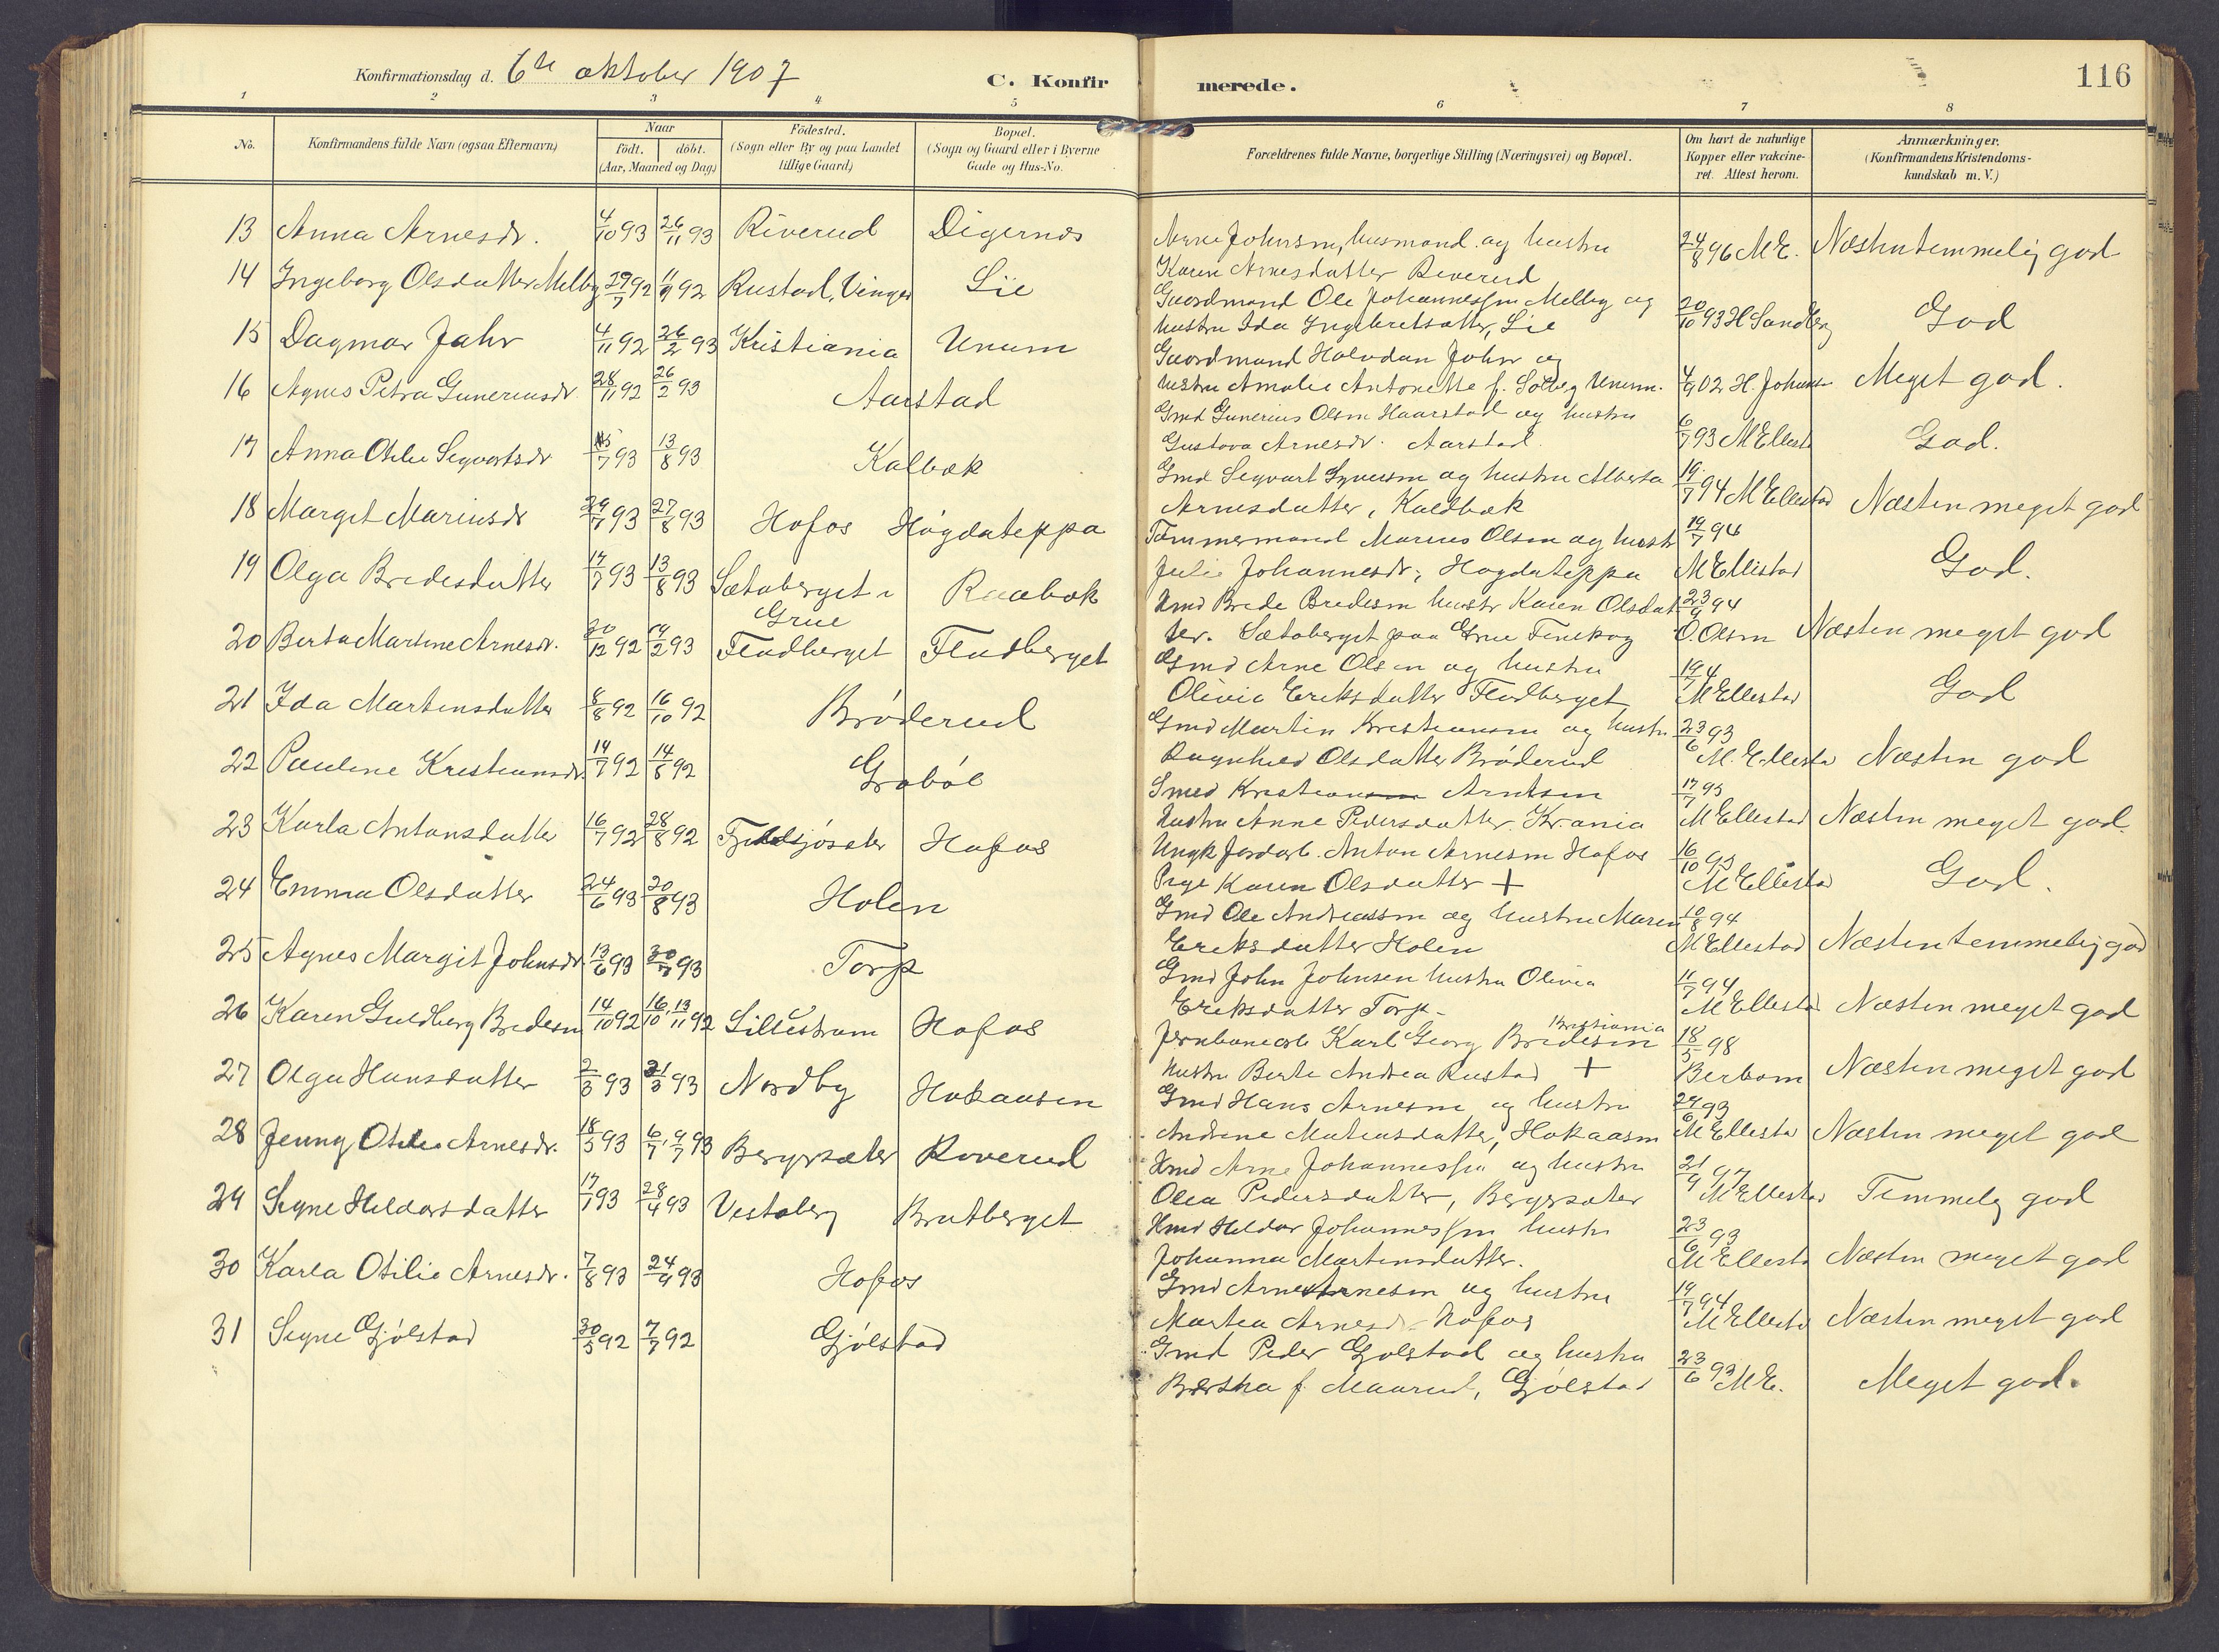 Konfirmationsdag d. 6te oktober 1907
C. Konfirmerede.
116
1 2 3 4 5 6 7 8
No. Konfirmandens fulde Navn (ogsaa Efternavn) Naar födt. döbt. (Aar, Maaned og Dag) Födested. (Sogn eller By og paa Landet tillige Gaard) Bopæl. (Sogn og Gaard eller i Byerne Gade og Hus-No. Forældrenes fulde Navne, borgerlige Stilling (Næringsvei) og Bopæl. Om havt de naturlige Kopper eller vakcineret. Attest herom. Anmærkninger. (Konfirmandens Kristendomskundskab m. V.)
13 Anna Arnesdr. 4/10 93 26/11 93 Riverud Digernes Arne Johnsen, husmand og hustru Karen Arnesdatter Riverud 24/8 96 M E. Næsten temmelig god
14 Ingeborg Olsdatter Melby 29/7 92 11/9 92 Rustad, Vinger Lie Gaardmand Ole Johannessen Melby og hustru Ida Ingebretsdatter, Lie 20/10 93 H Sandberg God
15 Dagmar Jahr 4/11 92 26/2 93 Kristiania Unum Gaardmand Halvdan Jahr og hustru Amalie Antonette f. Solberg Unum. 4/9 02 H. Johans Meget god.
16 Agnes Petra Guneriusdr 28/11 92 26/2 93 Aarstad Gmd Gunerius Olsen Haarstad og hustru Gustava Arnesdr. Aarstad 6/7 93 M Ellest God.
17 Anna Otilie Segvartsdr 15/7 93 13/8 93 Kalbæk Gmd Segvart Syversen og hustru Alberta Arnesdatter, Kaldbæk 19/7 94 M Ellestad Næsten meget god
18 Marget Mariusdr 29/7 93 27/8 93 Hofos Høgdateppa Tømmermand Marius Olsen og hustr Julie Johannesdr, Høgdateppa 19/7 94 M Ellestad God.
19 Olga Bredesdatter 17/7 93 13/8 93 Sætaberget i Grue Raabæk Hmd Brede Bredesen hustr Karen Olsdatter. Sætaberget paa Grue Finskog 23/9 94 O. Olsen Næsten meget god
20 Berta Martine Arnesdr. 20/12 92 19/2 93 Fladberget Fladberget Gmd Arne Olsen og hustru Olivia Eriksdatter Fladberget 19/7 4 M Ellestad God
21 Ida Martinsdatter 8/8 92 16/10 92 Brøderud Gmd Martin Kristiansen og hustr Ragnhild Olsdatter Brøderud 23/6 93 M. Ellesta Næsten god
22 Pauline Kristiansdr. 14/7 92 14/8 92 Grøbøl Smed Kristian Arntsen Hustru Anne Pedersdatter. Kr.ania 17/7 93 M Ellestad Næsten meget god.
23 Karla Antonsdatter 16/7 92 28/8 92 Hofos Ungk Jordarb. Anton Arnesen Hofos Pige Karen Olsdatter + 16/10 93 M Ellesta God.
24 Emma Olsdatter 24/6 93 20/8 93 Holen Gmd Ole Andreassen og hustru Maren Eriksdatter Holen 10/8 94 M Ellestad Næsten temmelig god
25 Agnes Margit Johnsdr. 13/6 93 30/7 93 Torp Gmd John Johnsen hustru Olivia Eriksdatter Torp. 11/7 94 M Ellestad Næsten meget god
26 Karen Guldberg Bredesen 14/10 92 16/10, 13/11 92 Lillestrøm Hofos Jernbanearb Karl Georg Bredesen Kristiania hustru Berte Andrea Rustad + 18/5 98 Berbom Næsten meget god
27 Olga Hansdatter 2/3 93 31/3 93 Nordby Hokaasen Gmd Hans Arnesen og hustru Andrine Mateusdatter, Hokaasen 29/6 93 M Ellesta Næsten meget god
28 Jenny Otilie Arnesdr. 18/5 93 6/7, 9/7 93 Bergersæter Roverud Hmd Arne Johannessen og hustru Olea Pedersdatter, Bergersæter 21/9 97 M Ellestad Temmelig god
29 Segne Heldorsdatter 17/1 93 28/4 93 Vestaberg Bratberget Hmd Heldor Johannessen hustr Johanna Martinsdatter. 23/6 93 M Ellesta Næsten meget god
30 Karla Otilie Arnesdr. 7/8 93 24/9 93 Hofos Gmd Arne Arnesen og hustru Martea Arnesd. Hofos 19/7 94 M Ellesta Næsten meget god
31 Segne Gjølstad 30/5 92 7/7 92 Gjølstad Gmd Peder Gjølstad og hustru Bertha f. Maarud, Gjølstad 23/6 93 M E. Meget god.